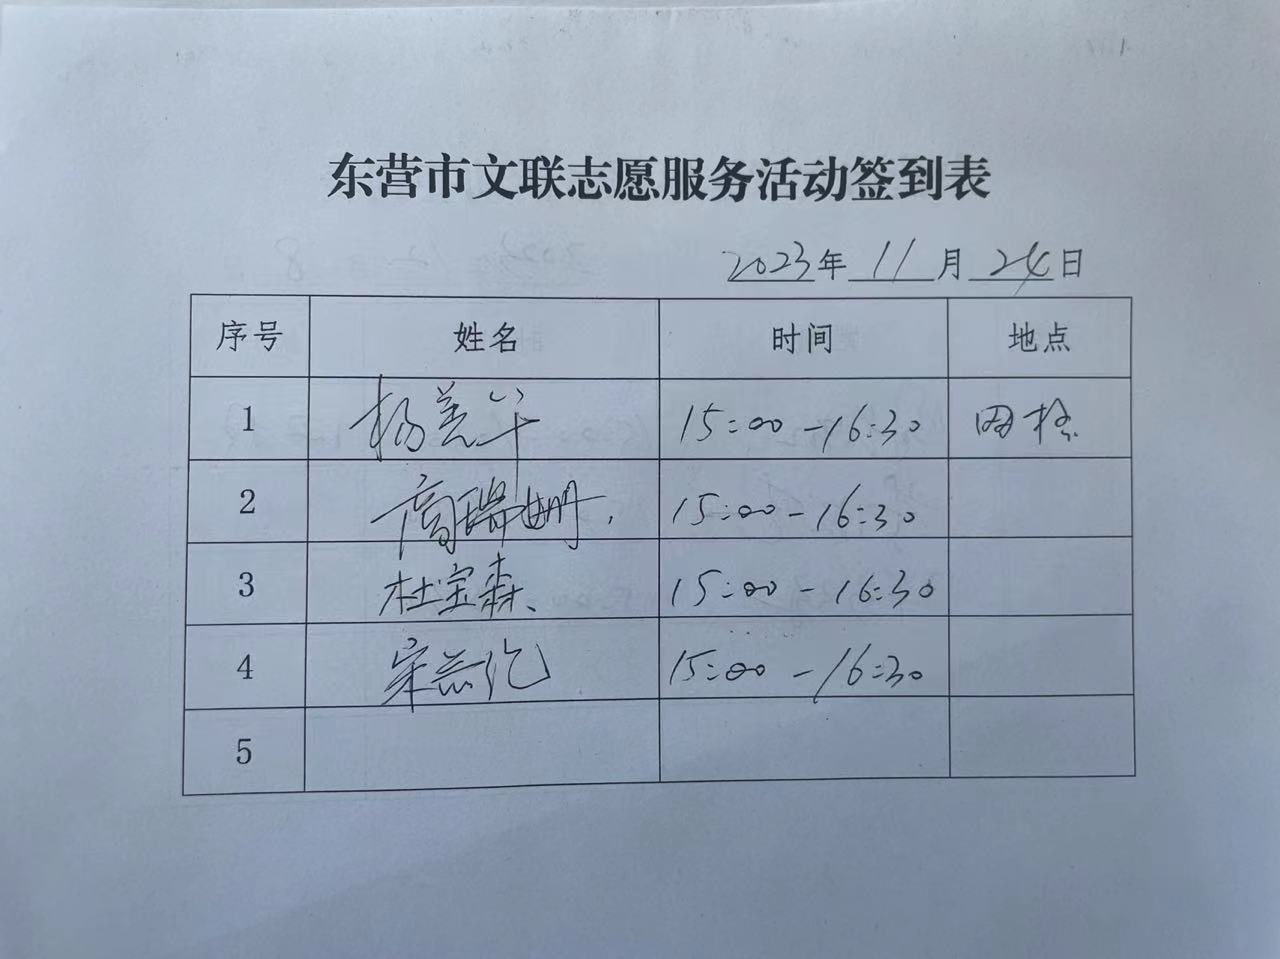 东营市文联志愿服务活动签到表
2023年 11 月 24 日
序号 姓名 时间 地点
1 杨美华 15:00-16:30 网格
2 高瑞姗 15:00-16:30
3 杜宝森 15:00-16:30
4 宋 15:00-16:30
5